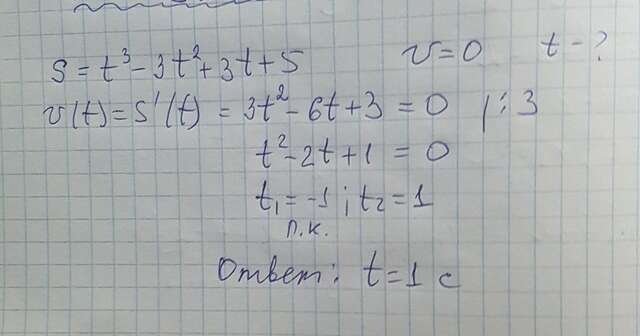 S = t³ - 3t² + 3t + 5 v = 0 t - ?
v(t) = S'(t) = 3t² - 6t + 3 = 0 | : 3
t² - 2t + 1 = 0
t₁ = -1 ; t₂ = 1
п.к.
Ответ: t = 1 с